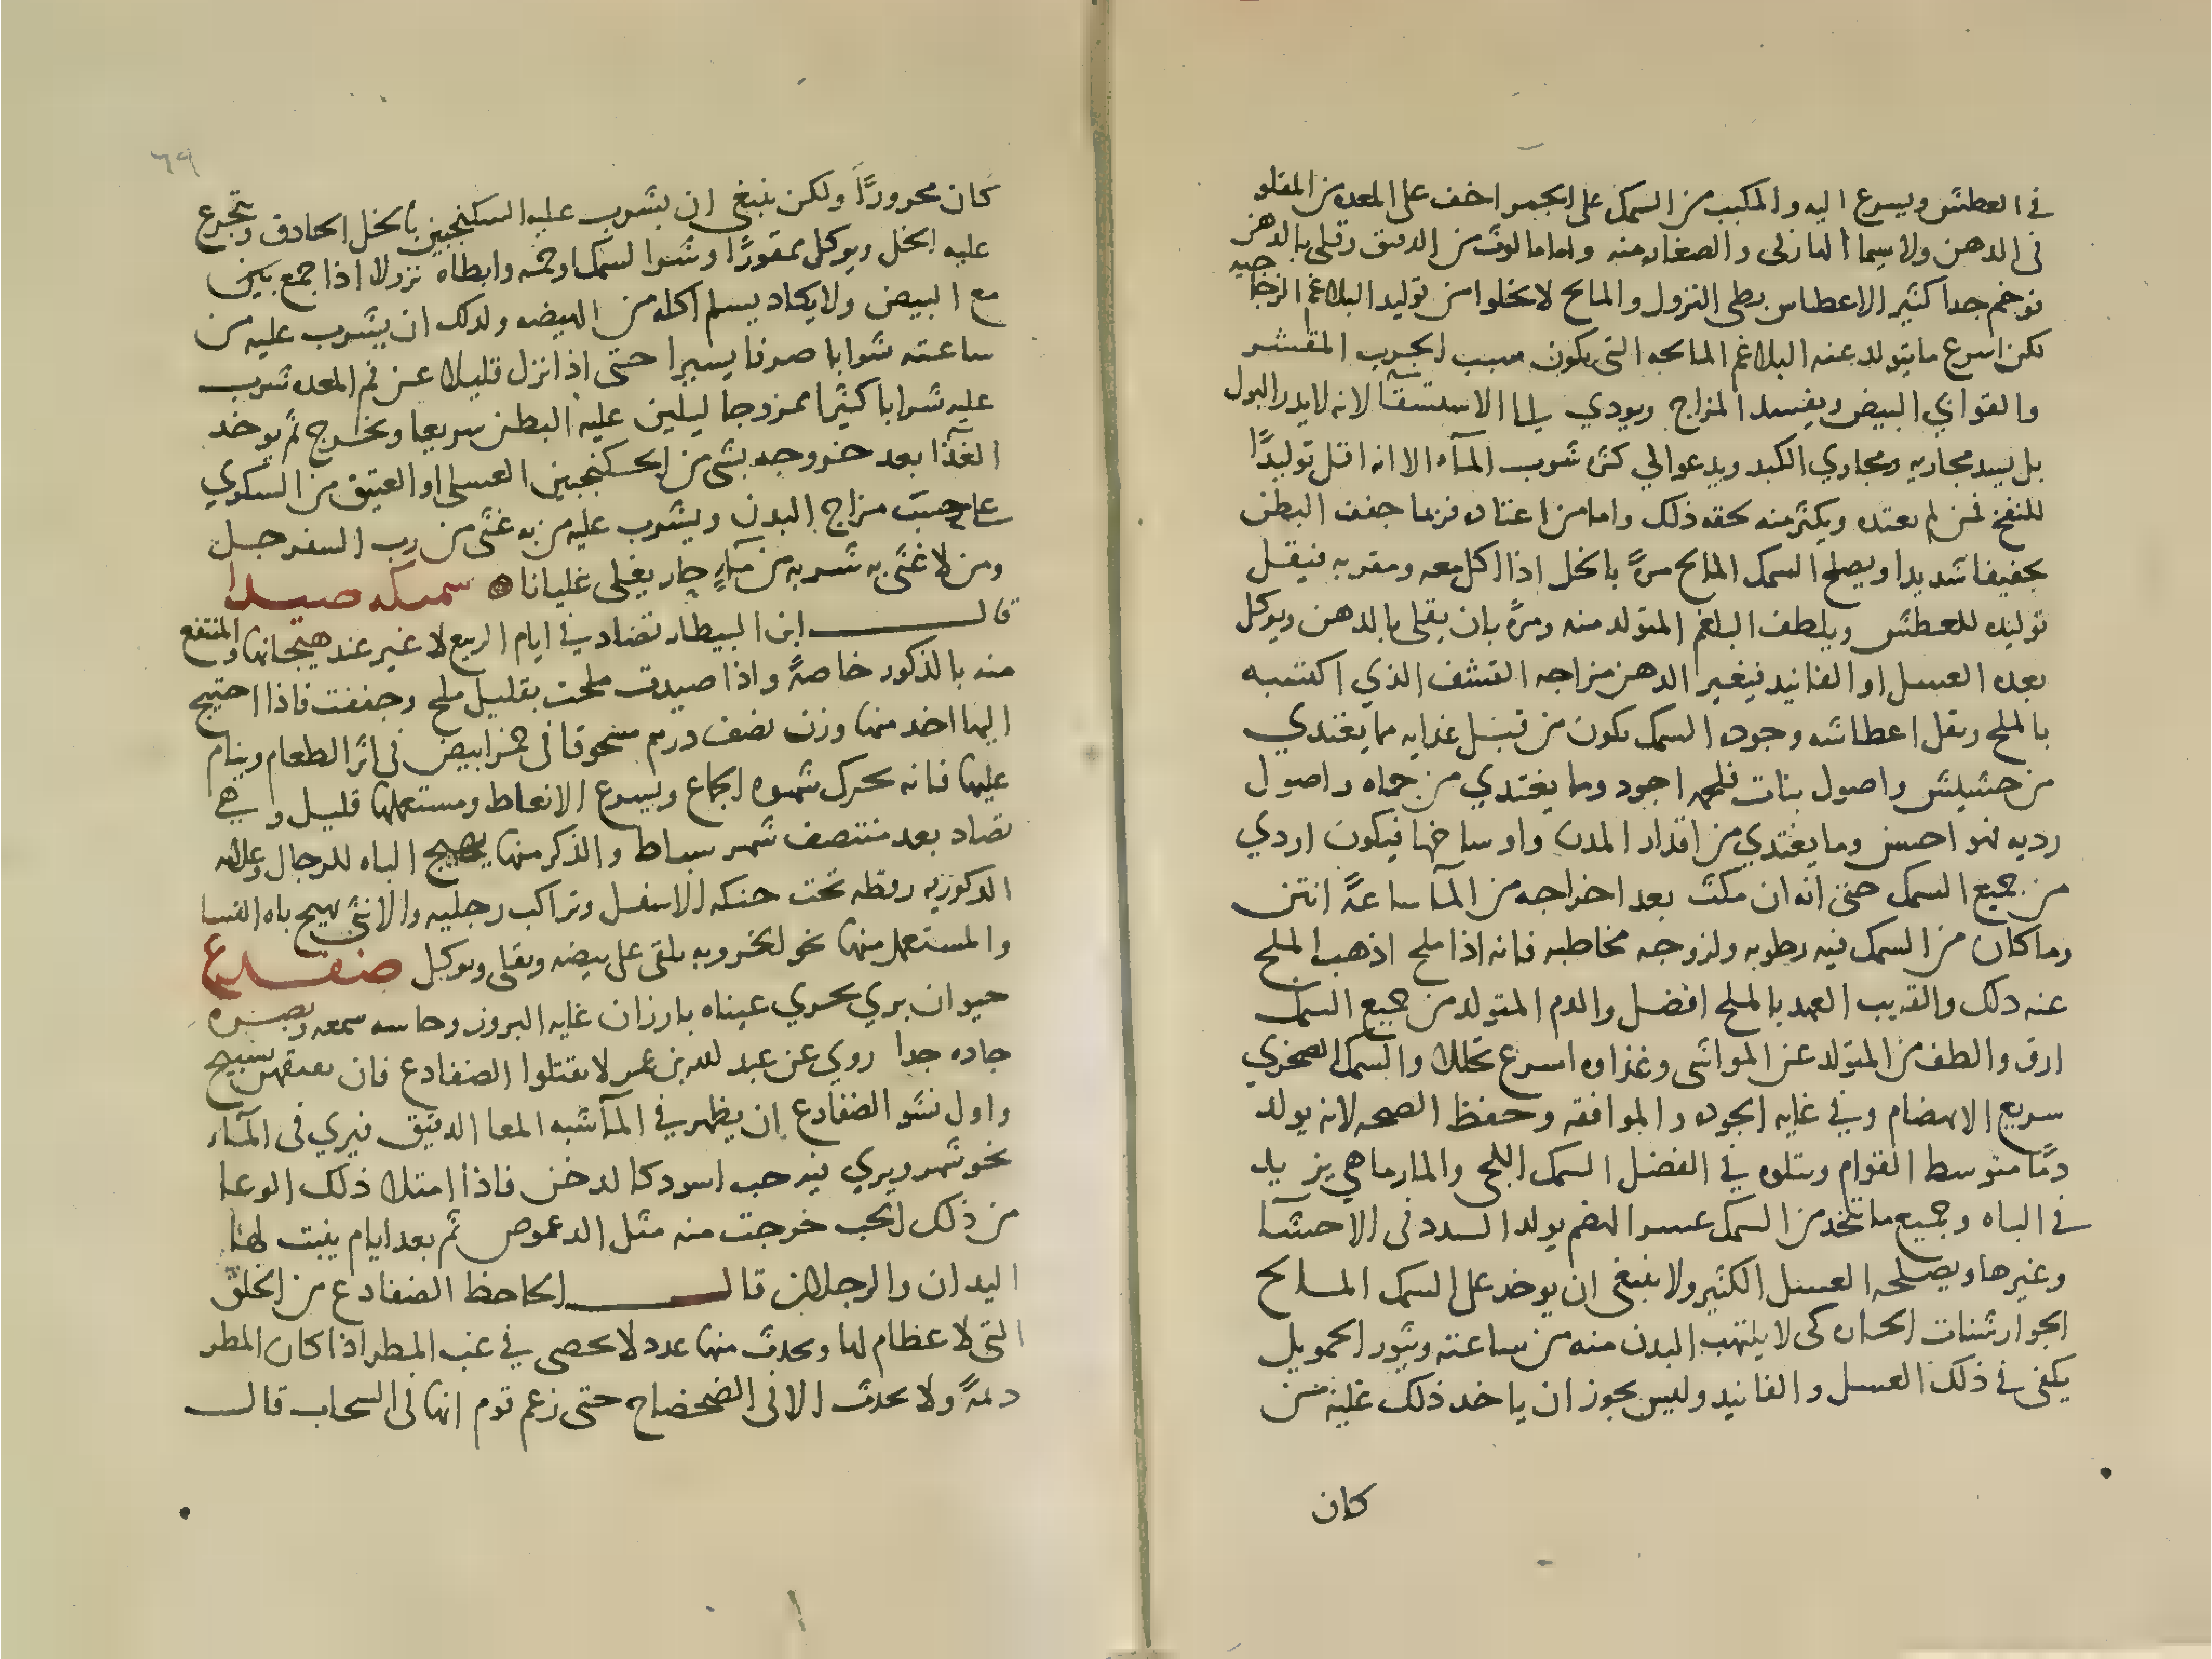 في العطش ويسرع اليه والمكبب من السمك على الجمر اخف على المعده من المقلو
في الدهن ولا سيما المازلى والصغار منه واما مالوث من الدقيق وقلى بالدهن
فوخم جدا كثير الاعطاش بطى النزول والمالح لا يخلوا من توليد البلاغم الزجاجيه
لكن اسرع ما يتولد عنه البلاغم المالحه التى يكون سبب الجرب المقشر
والقوابي البيض ويفسد المزاج ويودي الى الاستسقآ لانه لا يدر البول
بل يسد مجاريه ومجاري الكبد ويدعو الى كثره شرب المآء الا انه اقل توليدًا
للنفخ لمن لم يعتده ويكثر منه لحقه ذلك واما من اعتاده فربما جفف البطن
تجفيفا شديدا ويصلح السمك المالح مرةً بالخل اذا اكل معه ومقر به فيقل
توليده للعطش ويلطف البلغم المتولد منه ومرةً بان يقلى بالدهن ويوكل
بعده العسل او الفانيد فيغير الدهن مزاجه القشف الذي اكتسبه
بالملح ويقل اعطاشه وجوده السمك يكون من قبل غذايه مما يغتدي
من حشيش واصول بنات فلحمه اجود وما يغتدي من حماه واصول
رديه فهو احسن وما يغتدي من اقدار المدن واوساخها فيكون اردي
من جميع السمك حتى انه ان مكث بعد اخراجه من المآ ساعةً انتن
وما كان من السمك فيه رطوبه ولزوجه مخاطيه فانه اذا ملح اذهب الملح
عنه ذلك والقريب العهد بالملح افضل والدم المتولد من جميع السمك
ارق والطف من المتولد عن المواشى وغذاوه اسرع تحللا والسمك الصخري
سريع الانهضام وفي غايه الجوده والموافقه وحفظ الصحه لانه يولد
دمًا متوسط القوام ويتلوه في الفضل السمك اللجى والمارماهي يزيد
في الباه وجميع ما يتخد من السمك عسر الهضم يولد السدد فى الاحشآ
وغيرها ويصلحه العسل الكثير ولا ينبغى ان يوخد على السمك المالح
الجوارشنات الحاره كى لا يلتهب البدن منه من ساعته ويثور الحمو بل
يكفى في ذلك العسل والفانيد وليس يجوز ان ياخد ذلك عليه من
كان
٦٩
كان محرورًا ولكن ينبغي ان يشرب عليه السكنجبين بالخل الحادق ويتجرع
عليه الخل ويوكل ممقورًا وشوا السمك اوخمه وابطاه نزولا اذا جمع بين
مع البيض ولا يكاد يسلم اكله من الهيضه ولدلك ان يشرب عليه من
ساعته شرابا صرفا يسيرا حتى اذا نزل قليلا عن فم المعده شرب
عليه شرابا كثيرا ممزوجا ليلين عليه البطن سريعا ويخرج ثم يوخد
الغدآ بعد خروجه بشى من السكنجبين العسلى او العتيق من السكري
على حسب مزاج البدن ويشرب عليه من به غثى من رب السفرجل
ومن لا غثى به شربه من مآءٍ حار يغلى غليانا سمكه صيدا
قال ابن البيطار تصاد في ايام الربيع لا غير عند هيجانها والمنتفع
منه بالذكور خاصةً واذا صيدت ملحت بقليل ملح وجففت فاذا احتيج
اليها اخد منها وزن نصف درهم مسحوقا فى خمر ابيض فى اثر الطعام وينام
عليها فانه يحرك شهوه الجماع ويسرع الانعاط ومستعملها قليل وهي
تصاد بعد منتصف شهر سباط والذكر منها يهيج الباه للرجال وعلامه
الدكوريه رقطه تحت حنكه الاسفل وتراكب رجليه والانثى تهيج باه النسا
والمستعمل منها نحو الخروبه يلقى على بيضه ويقلى ويوكل ضفدع
حيوان بري بحري عيناه بارزان غايه البروز وحاسه سمعه وبصره
حاده جدا روي عن عبد الله بن عمر لا تقتلوا الضفادع فان نقيقهن تسبيح
واول نشو الضفادع ان يظهر في المآ شبه المعا الدقيق فيري فى المآء
نحو شهر ويري فيه حب اسود كالدخن فاذا امتلا ذلك الوعا
من ذلك الحب خرجت منه مثل الدعموص ثم بعد ايام ينبت لها
اليدان والرجلان قال الجاحظ الضفادع من الخلق
التى لا عظام لها ويحدث منها عدد لا يحصى في غب المطر اذا كان المطر
ديمةً ولا يحدث الا فى الضحضاح حتى زعم قوم انها فى السحاب قال